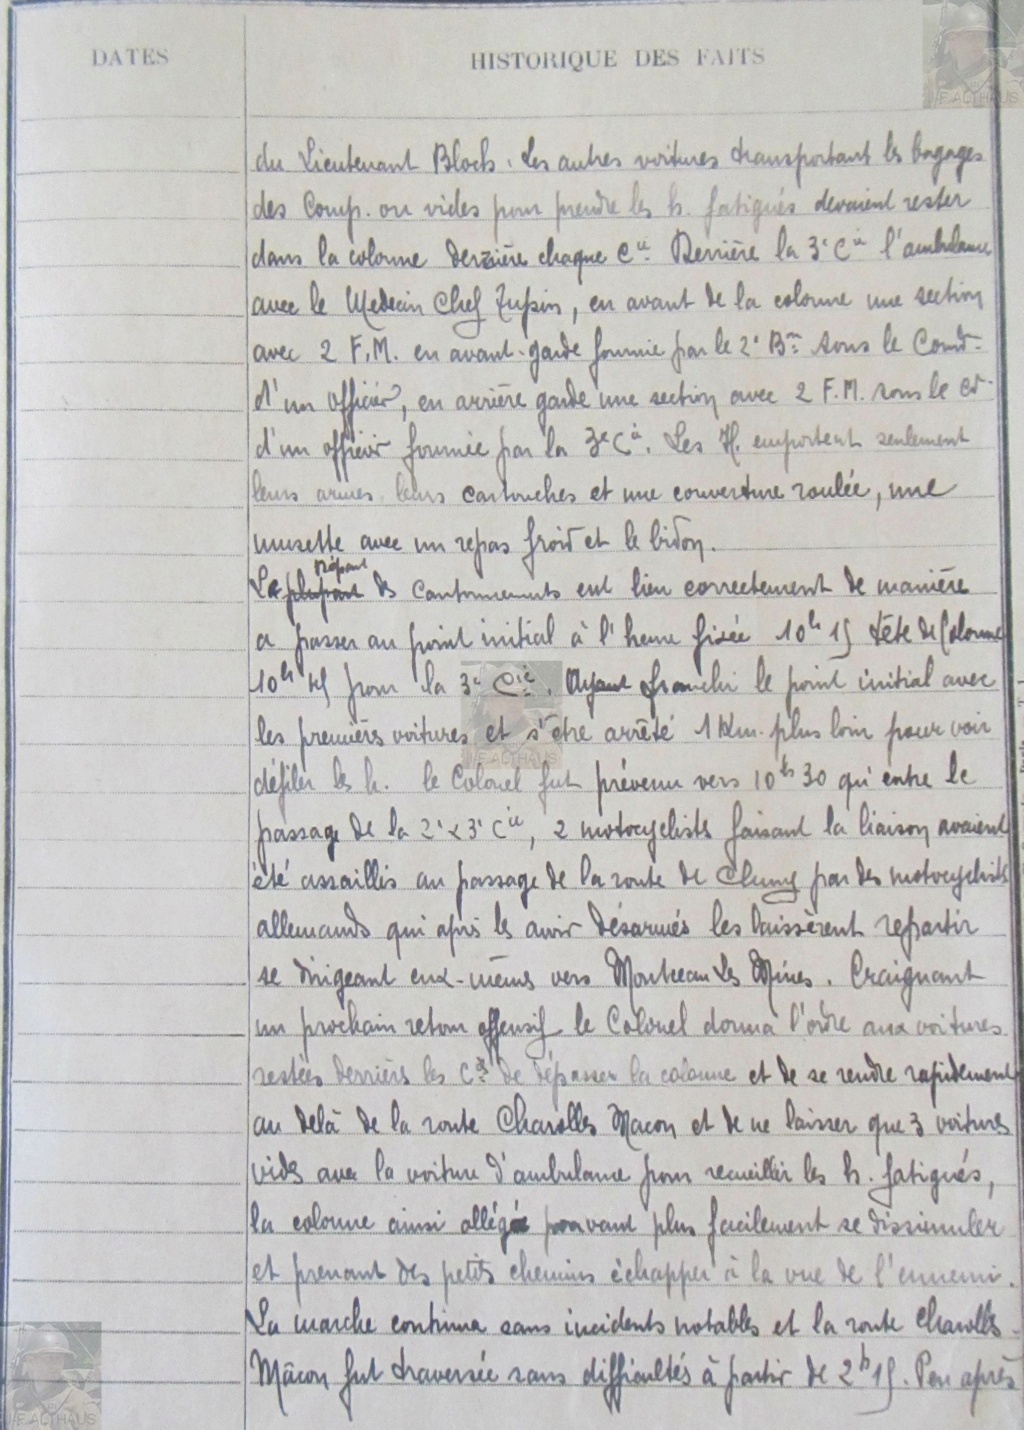 DATES
HISTORIQUE DES FAITS
du Lieutenant Bloch. Les autres voitures transportant les bagages
des Comp. ou vides pour prendre les h. fatigués devaient rester
dans la colonne derrière chaque Cie. Derrière la 3e Cie l'ambulance
avec le Medecin Chef Zupin, en avant de la colonne une section
avec 2 F.M. en avant-garde fournie par le 2e Bon sous le Comdt
d'un officier, en arrière garde une section avec 2 F.M. sous le Ct
d'un officier fournie par la 3e Cie. Les H. emportent seulement
leurs armes leurs cartouches et une couverture roulée, une
musette avec un repas froid et le bidon.
Le plupart départ des cantonnements eut lieu correctement de manière
a passer au point initial à l'heure fixée 10h 15 tête de Colonne
10h 45 pour la 3e Cie. Ayant franchi le point initial avec
les premières voitures et s'être arrêté 1 Km. plus loin pour voir
défiler les h. le Colonel fut prévenu vers 10h 30 qu'entre le
passage de la 2e & 3e Cie, 2 motocyclistes faisant la liaison avaient
été assaillis au passage de la route de Cluny par des motocyclistes
allemands qui après les avoir désarmés les laissèrent repartir
se dirigeant eux-mêmes vers Montceau Les Mines. Craignant
un prochain retour offensif le Colonel donna l'ordre aux voitures
restées derrière les Cies de dépasser la colonne et de se rendre rapidement
au delà de la route Charolles Macon et de ne laisser que 3 voitures
vides avec la voiture d'ambulance pour recueillir les h. fatigués,
la colonne ainsi allégée pouvant plus facilement se dissimuler
et prenant des petits chemins échapper à la vue de l'ennemi.
La marche continua sans incidents notables et la route Charolles-
Mâcon fut traversée sans difficultés à partir de 2h 15. Peu après
F. ALTHAUS
F. ALTHAUS
F. ALTHAUS